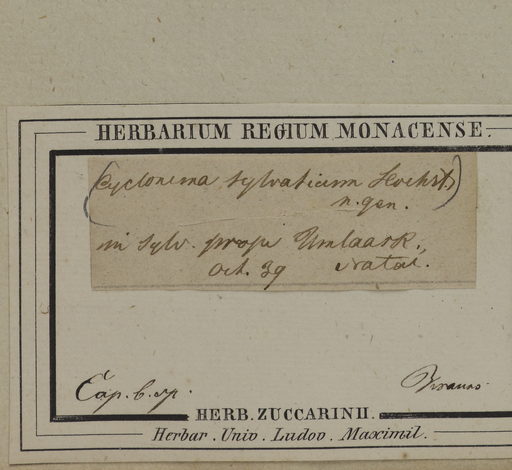 HERBARIUM REGIUM MONACENSE.
(Cyclonema sylvaticum Hochst)
n. gen.
in sylv. prope Umlaas R.,
Oct. 39 Natal.
Cap. b. sp. Krauss.
HERB. ZUCCARINII.
Herbar. Univ. Ludov. Maximil.